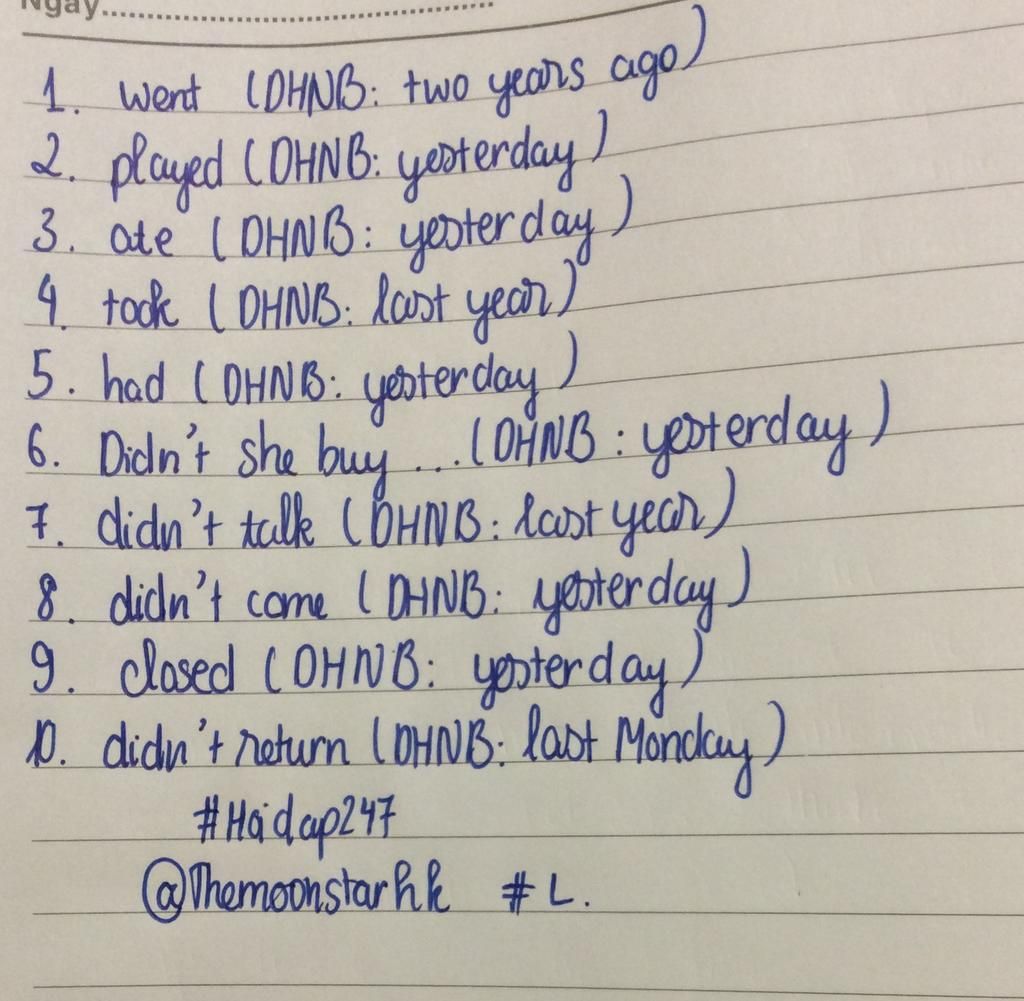 Ngày..............................
1. went (DHNB: two years ago)
2. played (DHNB: yesterday)
3. ate (DHNB: yesterday)
4. took (DHNB: last year)
5. had (DHNB: yesterday)
6. Didn't she buy ... (DHNB: yesterday)
7. didn't talk (DHNB: last year)
8. didn't come (DHNB: yesterday)
9. closed (DHNB: yesterday)
10. didn't return (DHNB: last Monday)
#Hoidap247
@Themoonstarhk #L.